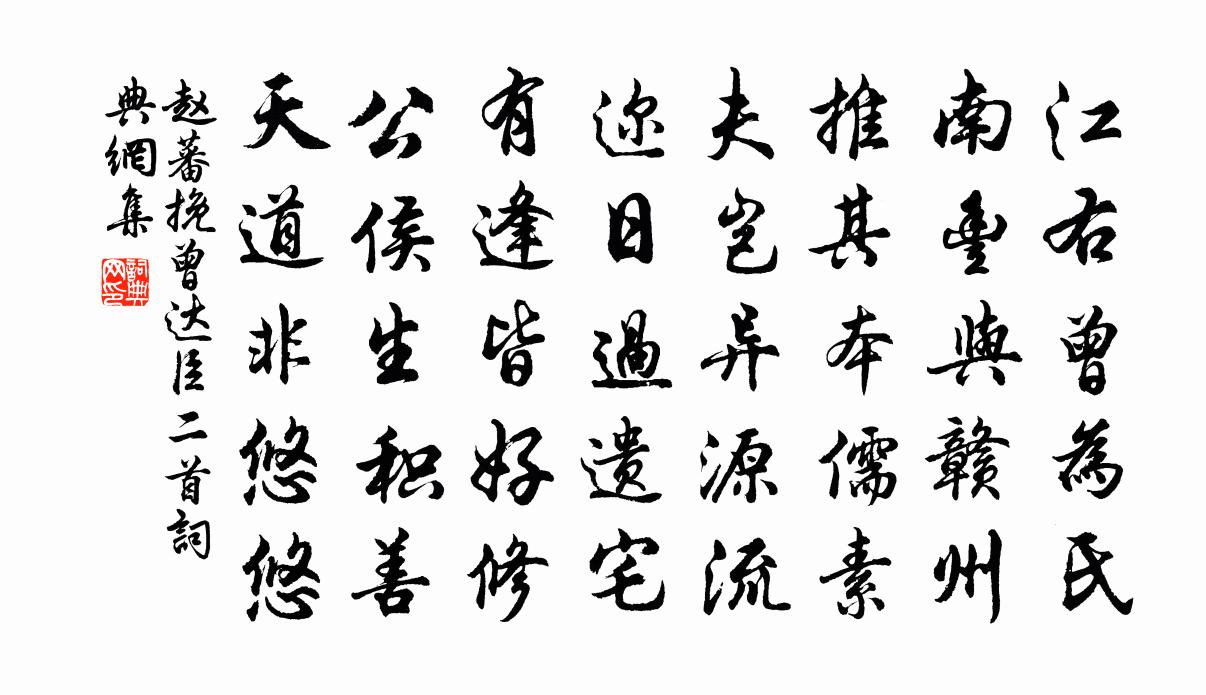 江右曾為氏
南豊與贛州
推其本儒素
夫岂异源流
迩日過遗宅
有逢皆好修
公侯生积善
天道非悠悠
赵蕃挽曾达臣二首詞
典網集
詞典
网印